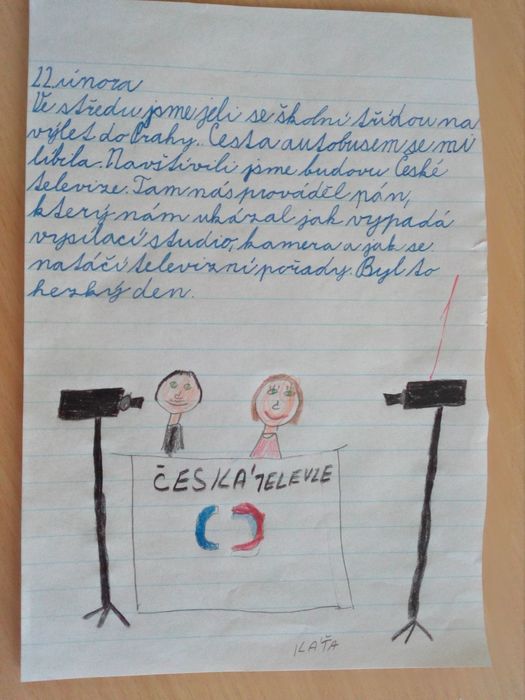 22.února
Ve středu jsme jeli se školní třídou na
výlet do Prahy. Cesta autobusem se mi
líbila. Navštívili jsme budovu České
televize. Tam nás prováděl pán,
který nám ukázal jak vypadá
vysílací studio, kamera a jak se
natáčí televizní pořady. Byl to
hezký den.
ČESKÁ TELEVZE
KÁŤA